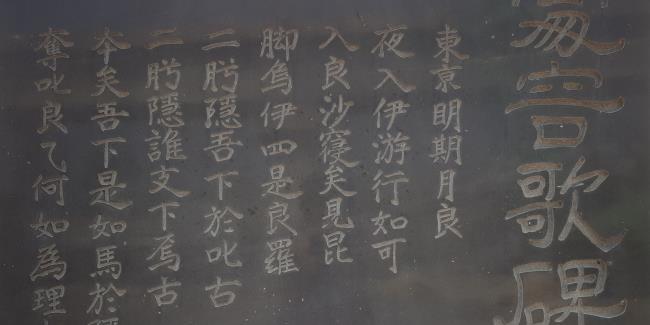 容歌碑
東京明期月良
夜入伊游行如可
入良沙寝矣見昆
脚烏伊四是良羅
二肹隱吾下於叱古
二肹隱誰支下焉古
本矣吾下是如馬於
奪叱良乙何如為理